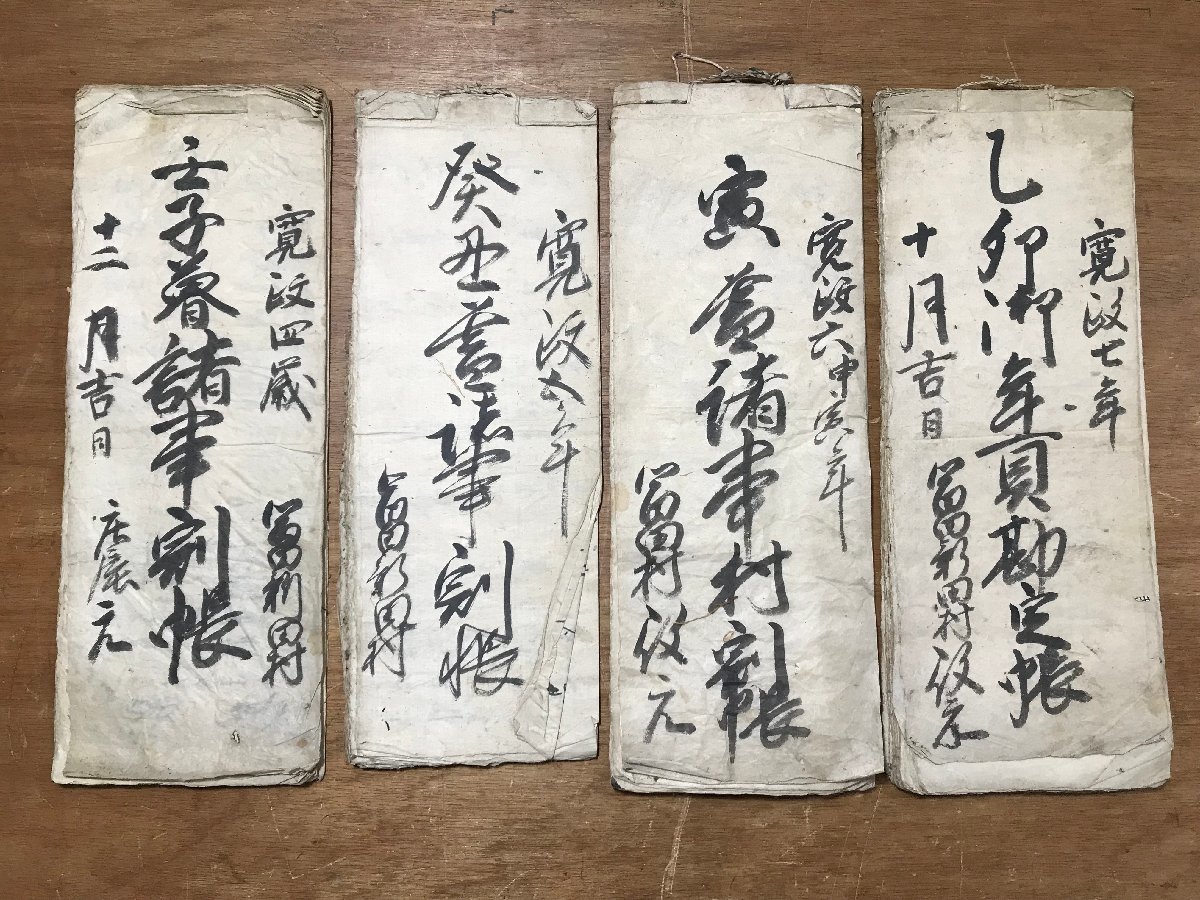 寛政四歳
當新田村
壬子暮諸事割帳
十二月吉日
庄屋元
寛政五年
癸丑暮諸事割帳
當新田村
寛政六甲寅年
寅暮諸事村割帳
役元
寛政七年
乙卯御年貢勘定帳
十月吉日
當新田村役元